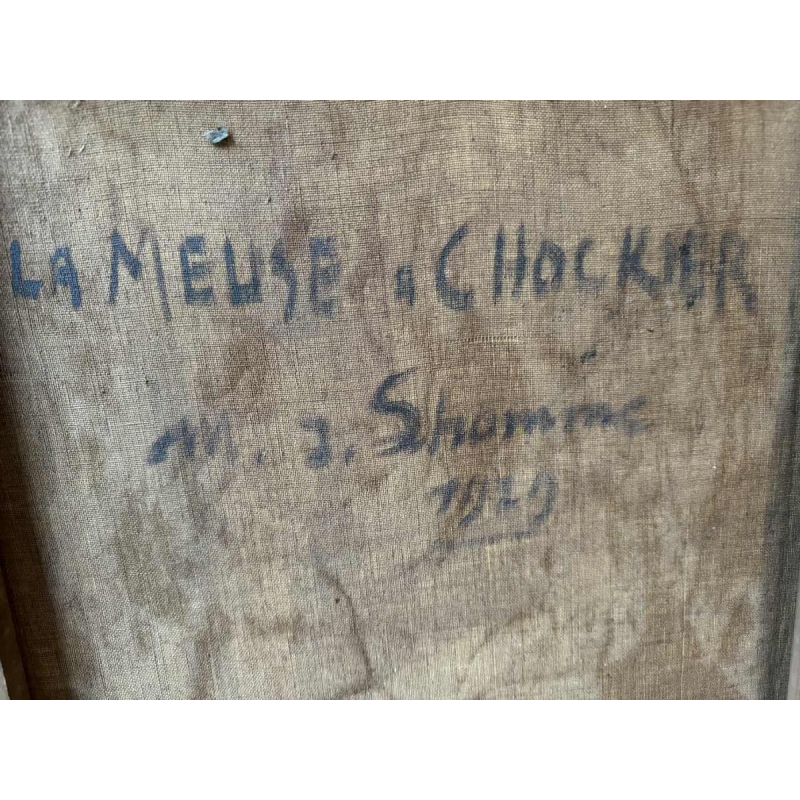 LA MEUSE a CHOCKIER
M. J. Shomme
1929